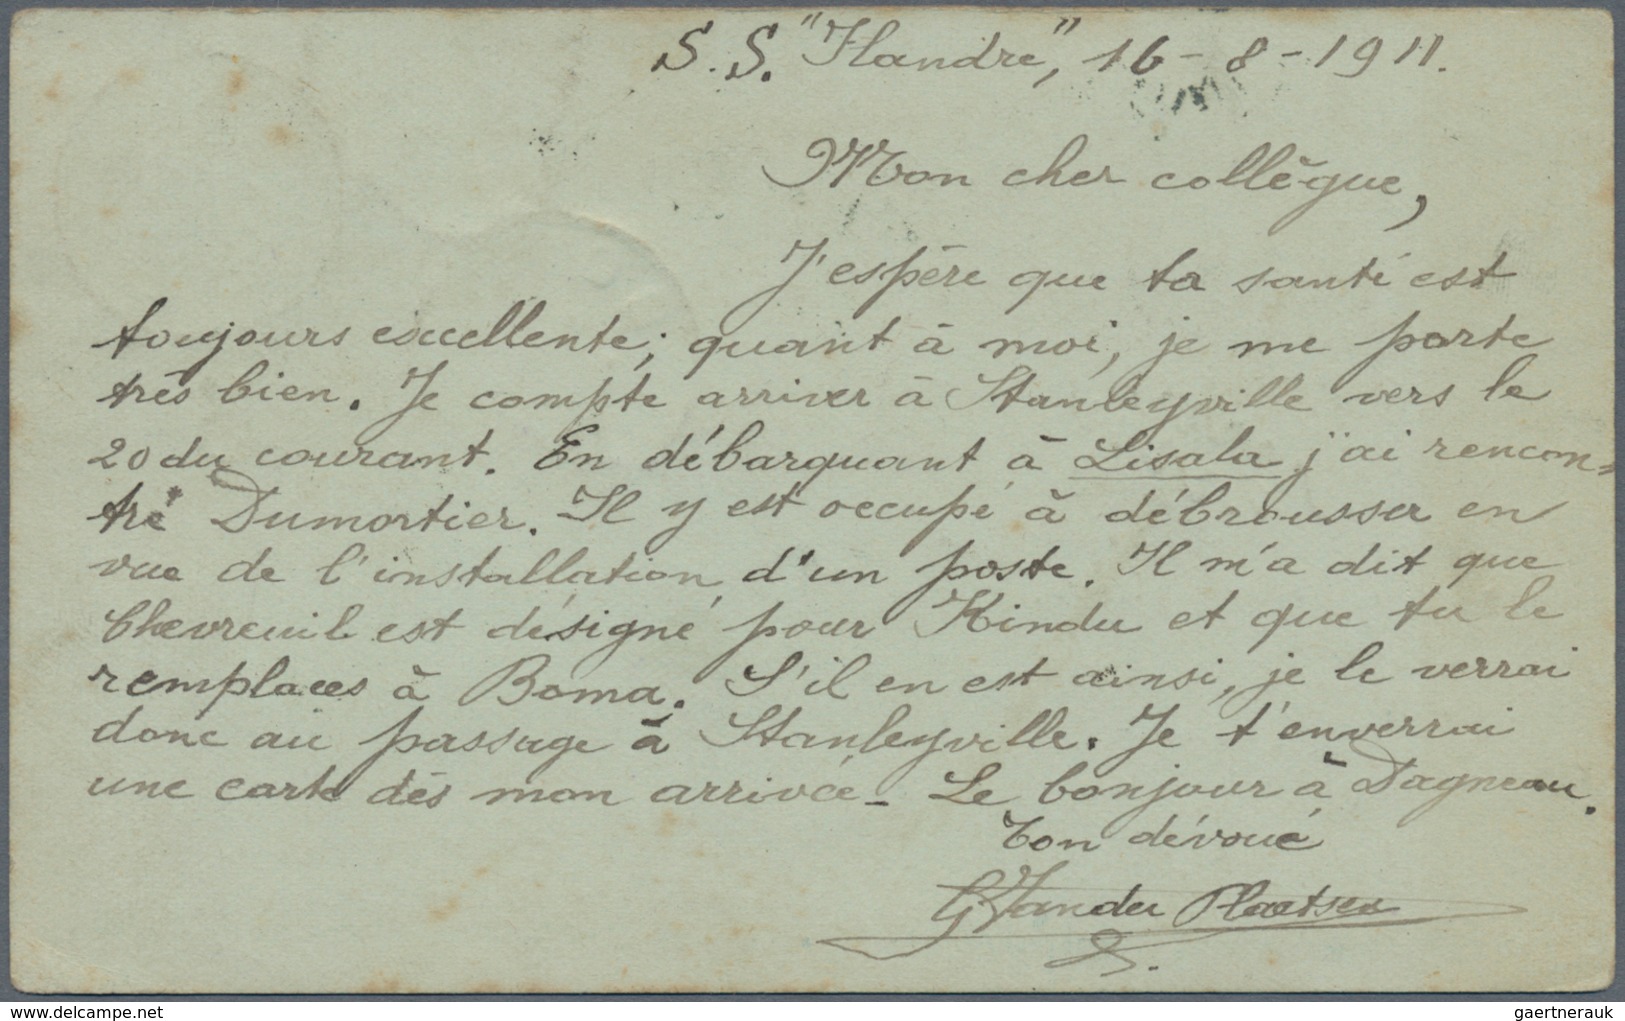 S.S. "Flandre", 16-8-1911.
Mon cher collègue,
J'espère que ta santé est
toujours excellente; quant à moi, je me porte
très bien. Je compte arriver à Stanleyville vers le
20 du courant. En débarquant à Lisala j'ai rencon=
tré Dumortier. Il y est occupé à débrousser en
vue de l'installation d'un poste. Il m'a dit que
Chevreuil est désigné pour Kindu et que tu le
remplaces à Boma. S'il en est ainsi, je le verrai
donc au passage à Stanleyville. Je t'enverrai
une carte dès mon arrivée - Le bonjour à Dagneau.
Ton dévoué
G. Vander Plaetsen
delcampe.net
gaertnerauk